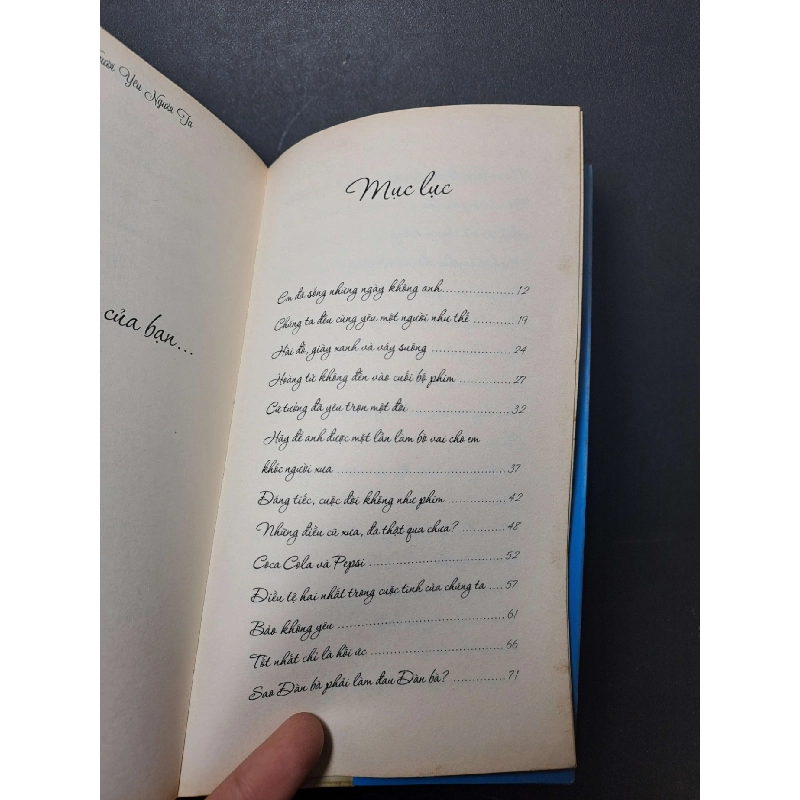 Yêu Người Ta
của bạn...
Mục lục
Em đã sống những ngày không anh..................12
Chúng ta đều cùng yêu một người như thế...........19
Hài đỏ, giày xanh và váy suông....................24
Hoàng tử không đến vào cuối bộ phim...............27
Cứ tưởng đã yêu trọn một đời......................32
Hãy để anh được một lần làm bờ vai cho em
khóc người xưa....................................37
Đáng tiếc, cuộc đời không như phim................42
Những điều cũ xưa, đã thật qua chưa?..............48
Coca Cola và Pepsi................................52
Điều tệ hại nhất trong cuộc tình của chúng ta.....57
Bảo không yêu.....................................61
Tốt nhất chỉ là hồi ức............................66
Sao Đàn bà phải làm đau Đàn bà?...................71